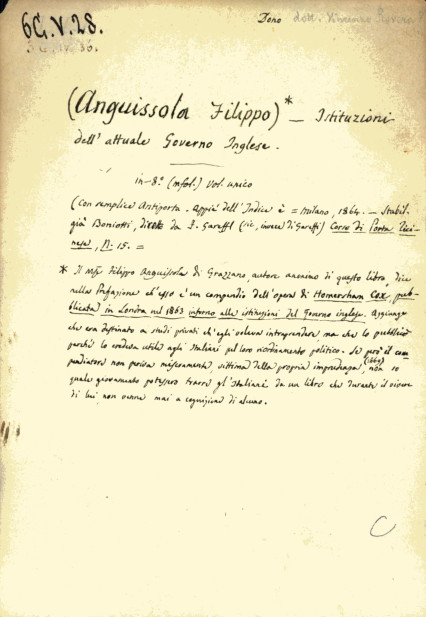 6G.V.28.
Dono dott. Vincenzo Rovera
(Anguissola Filippo)* — Istituzioni
dell' attuale Governo Inglese.
in-8º (infol.) Vol. unico
(Con semplice Antiporta. Appiè dell' Indice è = Milano, 1864. — Stabil.
già Boniotti, dirett. da F. Gareffi (sic, invece di Gareffi) Corso di Porta Tici-
nese, N: 15. =
* Il Filippo Anguissola di Grazzano, autore anonimo di questo libro, dice
nella Prefazione ch'esso è un compendio dell' opera di Homersham Cox, pub-
blicata in Londra nel 1863 intorno alle istituzioni del Governo inglese. Aggiunge
che era destinato a studi privati ch'egli voleva intraprendere, ma che lo pubblicò
perchè lo credeva utile agli Italiani pel loro riordinamento politico. Se però il com-
pendiatore non periva miseramente, vittima della propria imprudenza, (1864) non so
quale giovamento potessero trarre gl' Italiani da un libro che durante il vivere
di lui non venne mai a cognizione di alcuno.
C